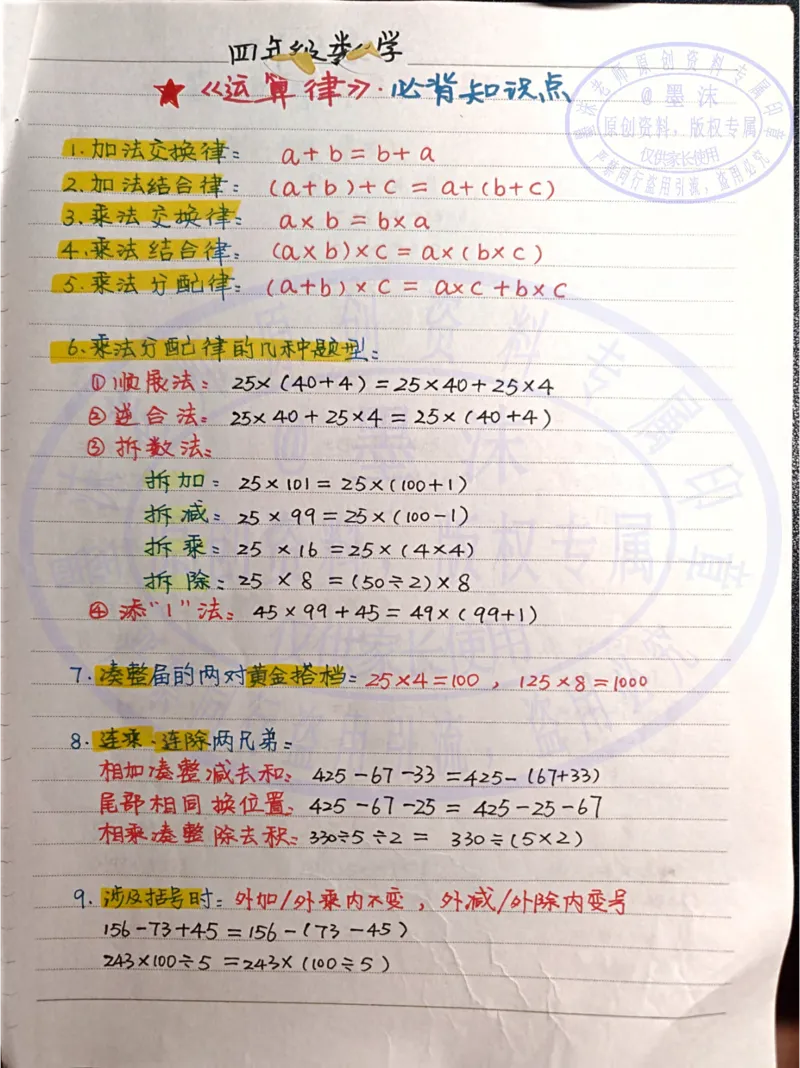 四年级数学
★《运算律》·必背知识点
墨沫老师原创资料专属印章
@墨沫
原创资料,版权专属
仅供家长使用
严禁同行盗用引流,盗用必究
1.加法交换律: a+b=b+a
2.加法结合律: (a+b)+c=a+(b+c)
3.乘法交换律: a×b=b×a
4.乘法结合律: (a×b)×c=a×(b×c)
5.乘法分配律: (a+b)×c=a×c+b×c
6.乘法分配律的几种题型:
①顺展法: 25×(40+4)=25×40+25×4
②逆合法: 25×40+25×4=25×(40+4)
③拆数法:
拆加: 25×101=25×(100+1)
拆减: 25×99=25×(100-1)
拆乘: 25×16=25×(4×4)
拆除: 25×8=(50÷2)×8
④添"1"法: 45×99+45=49×(99+1)
7.凑整届的两对黄金搭档: 25×4=100, 125×8=1000
8.连乘、连除两兄弟:
相加凑整减去和: 425-67-33=425-(67+33)
尾部相同换位置: 425-67-25=425-25-67
相乘凑整除去积: 330÷5÷2=330÷(5×2)
9.涉及括号时: 外加/外乘内不变, 外减/外除内变号
156-73+45=156-(73-45)
243×100÷5=243×(100÷5)